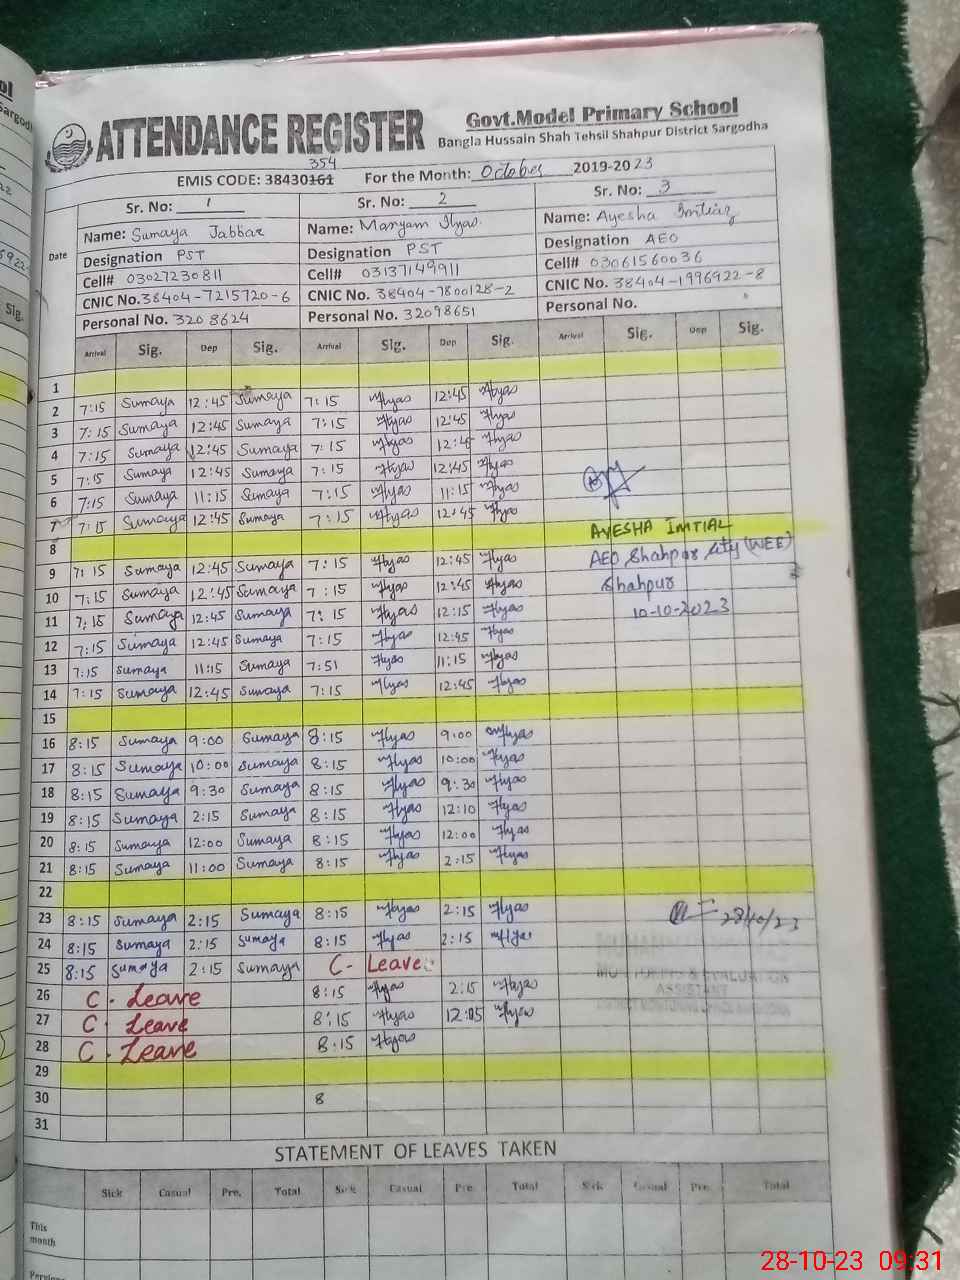 ATTENDANCE REGISTER
Govt.Model Primary School
Bangla Hussain Shah Tehsil Shahpur District Sargodha
354
EMIS CODE: 38430161 For the Month: October 2019-2023
Date Sr. No: 1 Sr. No: 2 Sr. No: 3
Name: Sumaya Jabbar Name: Maryam Ilyas. Name: Ayesha Imtiaz
Designation PST Designation PST Designation AEO
Cell# 03027230811 Cell# 03137149911 Cell# 03061560036
CNIC No. 38404-7215720-6 CNIC No. 38404-7800128-2 CNIC No. 38404-1996922-8
Personal No. 3208624 Personal No. 32098651 Personal No.
Arrival Sig. Dep Sig. Arrival Sig. Dep Sig. Arrival Sig. Dep Sig.
1
2 7:15 Sumaya 12:45 Sumaya 7:15 Ilyas 12:45 Ilyas
3 7:15 Sumaya 12:45 Sumaya 7:15 Ilyas 12:45 Ilyas
4 7:15 Sumaya 12:45 Sumaya 7:15 Ilyas 12:45 Ilyas
5 7:15 Sumaya 12:45 Sumaya 7:15 Ilyas 12:45 Ilyas
6 7:15 Sumaya 11:15 Sumaya 7:15 Ilyas 11:15 Ilyas
7 7:15 Sumaya 12:45 Sumaya 7:15 Ilyas 12:45 Ilyas
8 AYESHA IMTIAZ
9 7:15 Sumaya 12:45 Sumaya 7:15 Ilyas 12:45 Ilyas AEO Shahpur City (WEE)
10 7:15 Sumaya 12:45 Sumaya 7:15 Ilyas 12:45 Ilyas Shahpur
11 7:15 Sumaya 12:45 Sumaya 7:15 Ilyas 12:15 Ilyas 10-10-2023
12 7:15 Sumaya 12:45 Sumaya 7:15 Ilyas 12:45 Ilyas
13 7:15 Sumaya 11:15 Sumaya 7:51 Ilyas 11:15 Ilyas
14 7:15 Sumaya 12:45 Sumaya 7:15 Ilyas 12:45 Ilyas
15
16 8:15 Sumaya 9:00 Sumaya 8:15 Ilyas 9:00 Ilyas
17 8:15 Sumaya 10:00 Sumaya 8:15 Ilyas 10:00 Ilyas
18 8:15 Sumaya 9:30 Sumaya 8:15 Ilyas 9:30 Ilyas
19 8:15 Sumaya 2:15 Sumaya 8:15 Ilyas 12:10 Ilyas
20 8:15 Sumaya 12:00 Sumaya 8:15 Ilyas 12:00 Ilyas
21 8:15 Sumaya 11:00 Sumaya 8:15 Ilyas 2:15 Ilyas
22
23 8:15 Sumaya 2:15 Sumaya 8:15 Ilyas 2:15 Ilyas 28/10/23
24 8:15 Sumaya 2:15 Sumaya 8:15 Ilyas 2:15 Ilyas
25 8:15 Sumaya 2:15 Sumaya C- Leave
MONITORING & EVALUATION
ASSISTANT
26 C. Leave 8:15 Ilyas 2:15 Ilyas
27 C. Leave 8:15 Ilyas 12:05 Ilyas
28 C. Leave 8:15 Ilyas
29
30 8
31
STATEMENT OF LEAVES TAKEN
Sick Casual Pre. Total Sick Casual Pre. Total Sick Casual Pre. Total
This
month
28-10-23 09:31